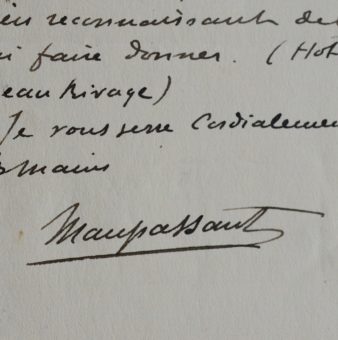 ien reconnaissant de
i faire donner. (Hot
eau Rivage)
Je vous serre Cordialemen
s mains
Maupassant